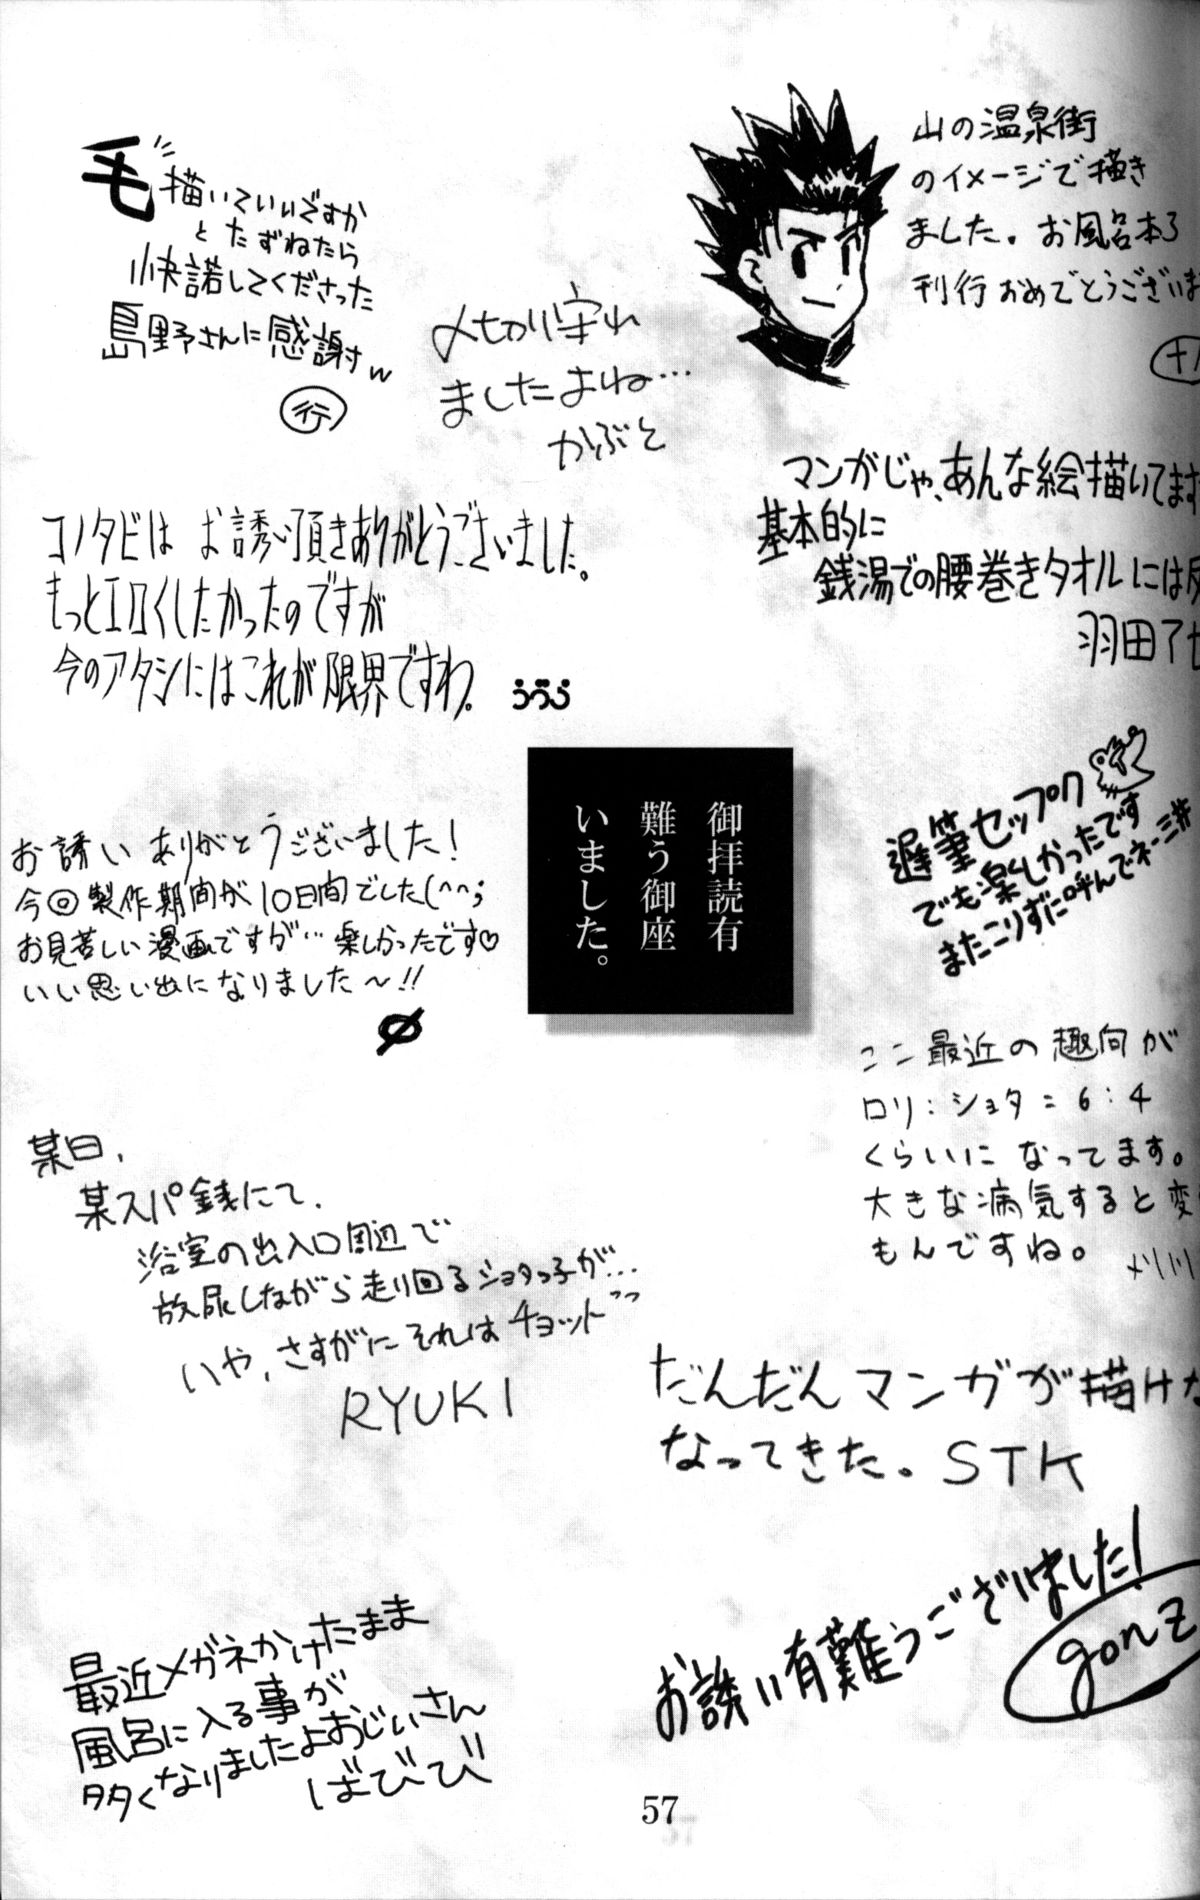 毛
描いていいですか
とたずねたら
快諾してくださった
島野さんに感謝w
行
〆切り守れ
ましたよね…
かぶと
山の温泉街
のイメージで描き
ました。お風呂本3
刊行おめでとうございま
マンガじゃ、あんな絵描いてます
基本的に
銭湯での腰巻きタオルには
羽田
コノタビは お誘い頂きありがとうございました。
もっとエロくしたかったのですが
今のアタシにはこれが限界ですわ。
うづら
御拝読有
難う御座
いました。
遅筆セップク
でも楽しかったです
またこりずに呼んでネー
お誘いありがとうございました!
今回製作期間が10日間でした(^^;
お見苦しい漫画ですが… 楽しかったです♡
いい思い出になりました〜!!
ここ最近の趣向が
ロリ:ショタ=6:4
くらいになってます。
大きな病気すると変
もんですね。
某日、
某スパ銭にて、
浴室の出入口周辺で
放尿しながら走り回るショタっ子が…
いや、さすがにそれはチョットッッ
RYUKI
だんだんマンガが描けな
なってきた。STK
お誘い有難うございました!
gonz
最近メガネかけたまま
風呂に入る事が
多くなりましたよおじいさん
ばびび
57